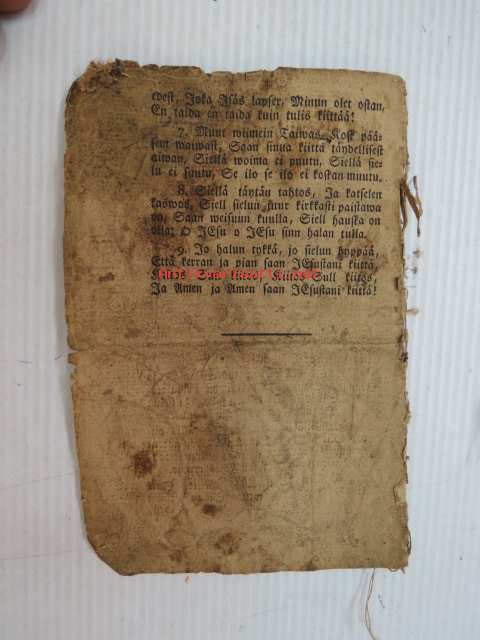 edest, Joka Isäs lapsex, Minun olet ostan,
En taida en taida kuin tulis kiittää!
7. Muut wiimein Taiwas, Kosk pää-
sen waiwast, Saan sinua kiittä täydellisest
aiwan, Siellä woima ei puutu, Siellä sie-
lu ei suutu, Se ilo se ilo ei koskan muutu.
8. Siellä täytän tahtos, Ja katselen
kaswos, Siell sielun suur kirkkasti paistawa
on, Saan weisuun kuulla, Siell hauska on
olla; O JEsu o JEsu sinn halan tulla.
9. Jo halun rykkä, jo sielun hyppää,
Että kerran ja pian saan JEsustani kiittä,
Kiitos Sull kiitos, Kiitos Sull kiitos,
Ja Amen ja Amen saan JEsustani kiittä!